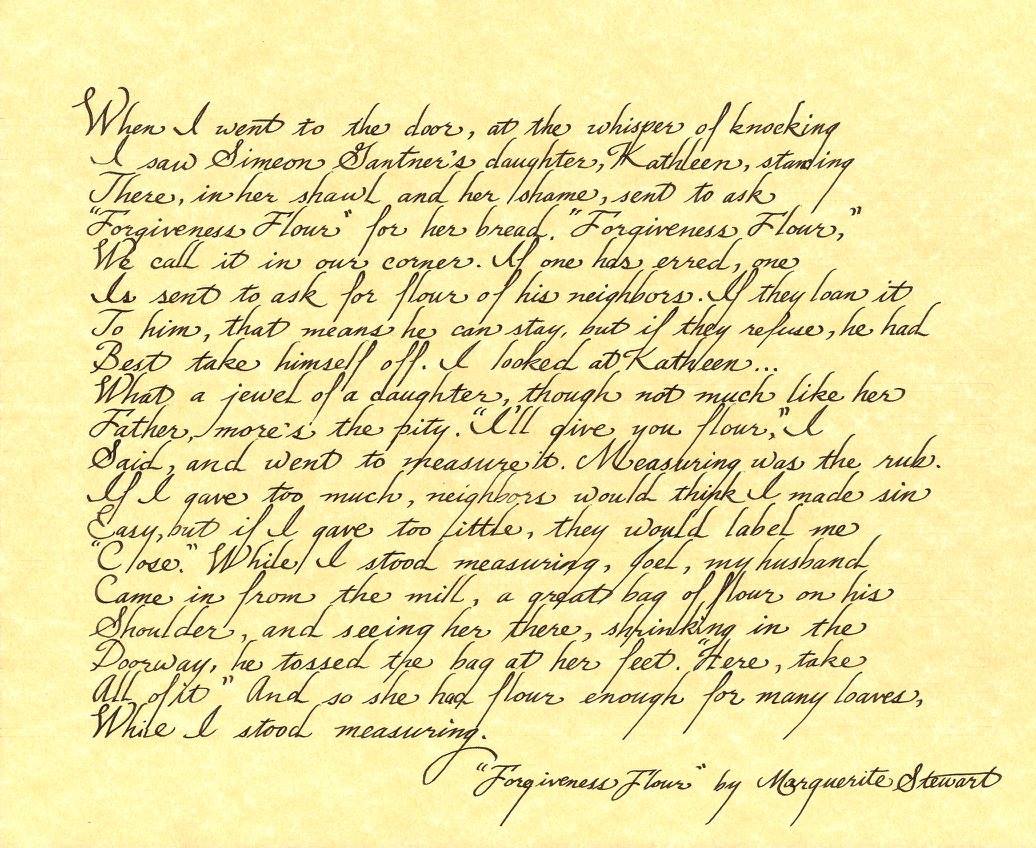 When I went to the door, at the whisper of knocking
I saw Simeon Gantner's daughter, Kathleen, standing
There, in her shawl and her shame, sent to ask
"Forgiveness Flour" for her bread. "Forgiveness Flour,"
We call it in our corner. If one has erred, one
Is sent to ask for flour of his neighbors. If they loan it
To him, that means he can stay, but if they refuse, he had
Best take himself off. I looked at Kathleen...
What a jewel of a daughter, though not much like her
Father, more's the pity. "I'll give you flour," I
Said, and went to measure it. Measuring was the rub.
If I gave too much, neighbors would think I made sin
Easy, but if I gave too little, they would label me
"Close." While I stood measuring, Joel, my husband
Came in from the mill, a great bag of flour on his
Shoulder, and seeing her there, shrinking in the
Doorway, he tossed the bag at her feet. "Here, take
All of it" And so she had flour enough for many loaves,
While I stood measuring.
"Forgiveness Flour" by Marguerite Stewart